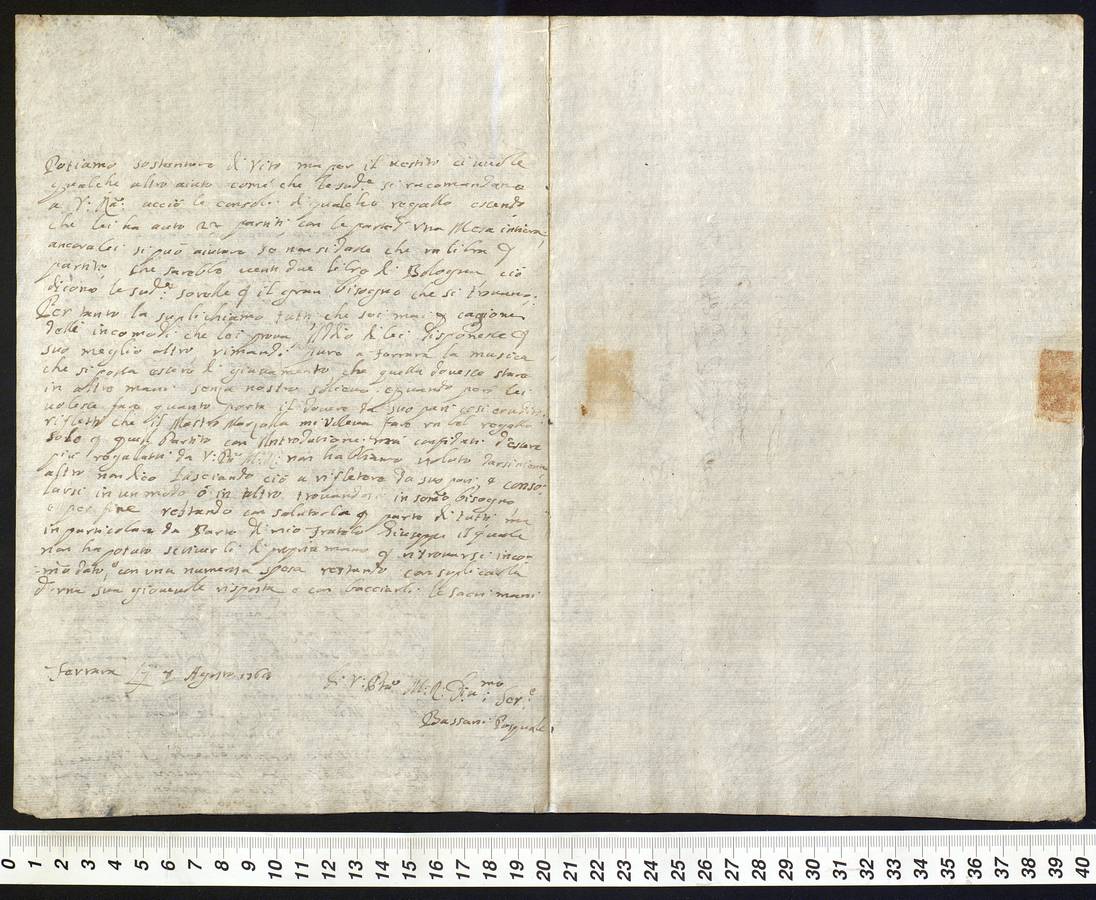 Potiamo sostentare di vito ma per il vestito ci vuole
qualche altro aiuto come che le sud.e si racomandano
a V: Rã: acciò le consoli di qualche regallo essendo
che lei ha auto 22 partiti con le parte d' una Mesa intiera
ancora lei si può aiutare se non si dasse che un libra
partito che sareble venti due libre di Bologna ciò
dicono le sud.e sorelle il gran bisogno che si trovano:
Per tanto la suplichiamo tutti che sei mai cagione
delli incomodi che lei prova Iddio di lei disponesse
suo meglio altro rimandi pure a ferrara la musica
che si possa essere di giovamento che quella dovesse stare
in altre mani senza nostro solievo quando poi lei
volesse fare quanto porta il dovere da suo pari così erudito
rifletti che il Mastro Marzolla mi voleva fare un bel regallo
solo quel Partito con l'Introduzione ma confidati d'essere
più regalatti da V: non habbiamo voluto darsine
altro non dico lasciando ciò a riflettere da suo pari, e conso-
larsi in un modo ò in altro trovandosi in somo bisogno
e per fine restando con salutarla parte di tutti ma
in particolare da Parte di mio fratelo Giuseppe il quale
non ha potuto scriverli di propria mano ritrovarsi inco-
modato, con una numerosa sposa restando con suplicarla
d'una sua giovevole risposta e con bacciarli le sacri mani
Ferrara 7 Agosto
di V: M: R: Ser.e
Bassani Pasquale